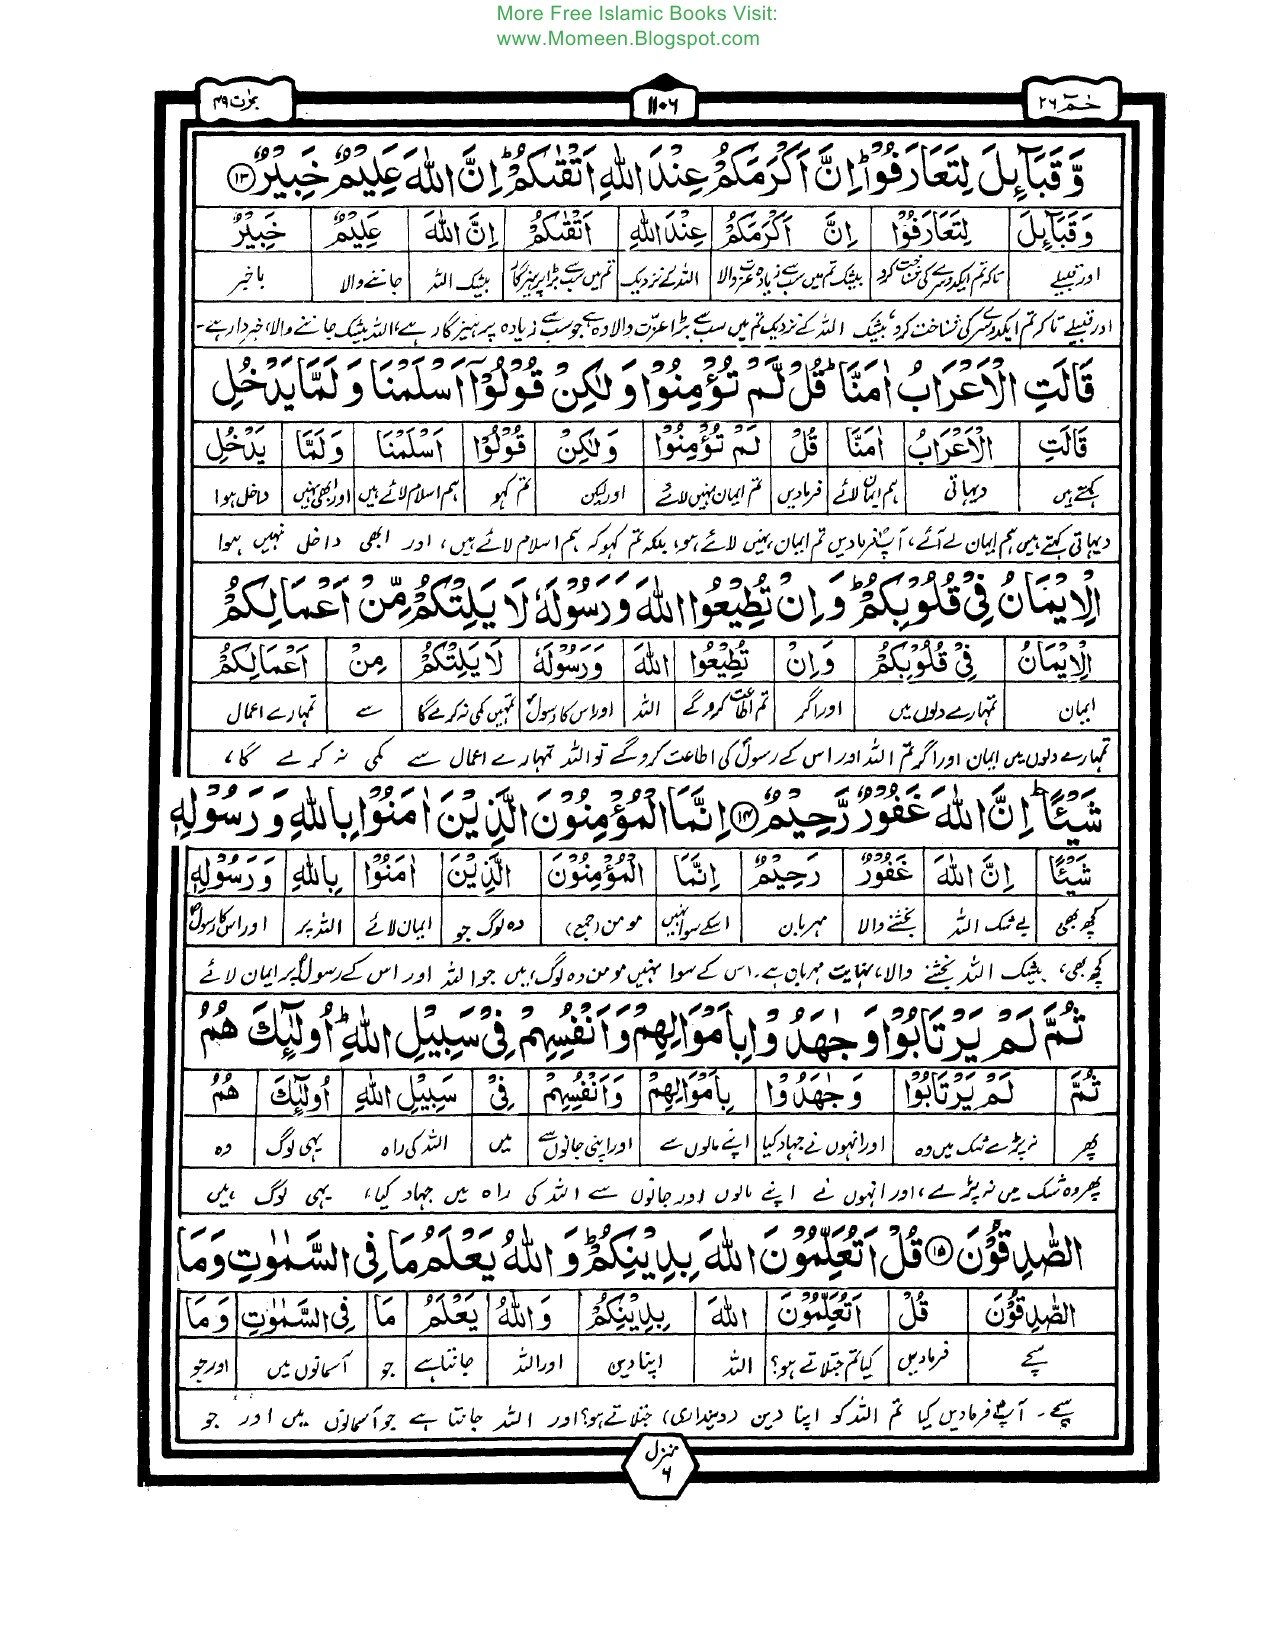 More Free Islamic Books Visit:
www.Momeen.Blogspot.com
حٰمٓ ۲۶
۱۱۰۶
وَّ قَبَآئِلَ لِتَعَارَفُوْا ؕ اِنَّ اَكْرَمَكُمْ عِنْدَ اللّٰهِ اَتْقٰىكُمْ ؕ اِنَّ اللّٰهَ عَلِیْمٌ خَبِیْرٌ ۱۳
وَقَبَآئِلَ لِتَعَارَفُوْا اِنَّ اَكْرَمَكُمْ عِنْدَ اللّٰهِ اَتْقٰىكُمْ اِنَّ اللّٰهَ عَلِیْمٌ خَبِیْرٌ
اور قبیلے تاکہ تم ایکدوسرے کی شناخت کرو بیشک تم میں سب سے زیادہ عزت والا اللہ کے نزدیک تم میں سب سے بڑا پرہیزگار بیشک اللہ جاننے والا باخبر
اور قبیلے تاکہ تم ایکدوسرے کی شناخت کرو، بیشک اللہ کے نزدیک تم میں سب سے بڑا عزت والا وہ ہے جو سب سے زیادہ پرہیزگار ہے، اللہ بیشک جاننے والا، خبردار ہے۔
قَالَتِ الْاَعْرَابُ اٰمَنَّا ؕ قُلْ لَّمْ تُؤْمِنُوْا وَلٰكِنْ قُوْلُوْۤا اَسْلَمْنَا وَ لَمَّا یَدْخُلِ
قَالَتِ الْاَعْرَابُ اٰمَنَّا قُلْ لَمْ تُؤْمِنُوْا وَلٰكِنْ قُوْلُوْا اَسْلَمْنَا وَلَمَّا یَدْخُلِ
کہتے ہیں دیہاتی ہم ایمان لائے فرمادیں تم ایمان نہیں لائے اور لیکن تم کہو ہم اسلام لائے ہیں اور ابھی نہیں داخل ہوا
دیہاتی کہتے ہیں ہم ایمان لے آئے، آپ فرمادیں تم ایمان نہیں لائے ہو، بلکہ تم کہو کہ ہم اسلام لائے ہیں، اور ابھی داخل نہیں ہوا
الْاِیْمَانُ فِیْ قُلُوْبِكُمْ ؕ وَ اِنْ تُطِیْعُوا اللّٰهَ وَ رَسُوْلَهٗ لَا یَلِتْكُمْ مِّنْ اَعْمَالِكُمْ
الْاِیْمَانُ فِیْ قُلُوْبِكُمْ وَاِنْ تُطِیْعُوا اللّٰهَ وَرَسُوْلَهٗ لَا یَلِتْكُمْ مِنْ اَعْمَالِكُمْ
ایمان تمہارے دلوں میں اور اگر تم اطاعت کروگے اللہ اور اس کا رسول تمہیں کمی نہ کرے گا سے تمہارے اعمال
تمہارے دلوں میں ایمان اور اگر تم اللہ اور اس کے رسول کی اطاعت کروگے تو اللہ تمہارے اعمال سے کمی نہ کرے گا،
شَیْـًٔا ؕ اِنَّ اللّٰهَ غَفُوْرٌ رَّحِیْمٌ ۱۴ اِنَّمَا الْمُؤْمِنُوْنَ الَّذِیْنَ اٰمَنُوْا بِاللّٰهِ وَ رَسُوْلِهٖ
شَیْـًٔا اِنَّ اللّٰهَ غَفُوْرٌ رَحِیْمٌ اِنَّمَا الْمُؤْمِنُوْنَ الَّذِیْنَ اٰمَنُوْا بِاللّٰهِ وَرَسُوْلِهٖ
کچھ بھی بے شک اللہ بخشنے والا مہربان اسکے سوا نہیں مومن (جمع) وہ لوگ جو ایمان لائے اللہ پر اور اس کا رسول
کچھ بھی، بیشک اللہ بخشنے والا، نہایت مہربان ہے۔ اس کے سوا نہیں مومن وہ لوگ ہیں جو اللہ اور اس کے رسول پر ایمان لائے
ثُمَّ لَمْ یَرْتَابُوْا وَ جٰهَدُوْا بِاَمْوَالِهِمْ وَ اَنْفُسِهِمْ فِیْ سَبِیْلِ اللّٰهِ ؕ اُولٰٓئِكَ هُمُ
ثُمَّ لَمْ یَرْتَابُوْا وَجٰهَدُوْا بِاَمْوَالِهِمْ وَاَنْفُسِهِمْ فِیْ سَبِیْلِ اللّٰهِ اُولٰٓئِكَ هُمُ
پھر نہ پڑے شک میں وہ اور انہوں نے جہاد کیا اپنے مالوں سے اور اپنی جانوں سے میں اللہ کی راہ یہی لوگ وہ
پھر وہ شک میں نہ پڑے، اور انہوں نے اپنے مالوں اور جانوں سے اللہ کی راہ میں جہاد کیا، یہی لوگ ہیں
الصّٰدِقُوْنَ ۱۵ قُلْ اَتُعَلِّمُوْنَ اللّٰهَ بِدِیْنِكُمْ ؕ وَ اللّٰهُ یَعْلَمُ مَا فِی السَّمٰوٰتِ وَ مَا
الصّٰدِقُوْنَ قُلْ اَتُعَلِّمُوْنَ اللّٰهَ بِدِیْنِكُمْ وَاللّٰهُ یَعْلَمُ مَا فِی السَّمٰوٰتِ وَمَا
سچے فرمادیں کیا تم جتلاتے ہو؟ اللہ اپنا دین اور اللہ جانتا ہے جو آسمانوں میں اور جو
سچے۔ آپ فرمادیں کیا تم اللہ کو اپنا دین (دینداری) جتلاتے ہو؟ اور اللہ جانتا ہے جو آسمانوں میں اور جو
منزل ۶